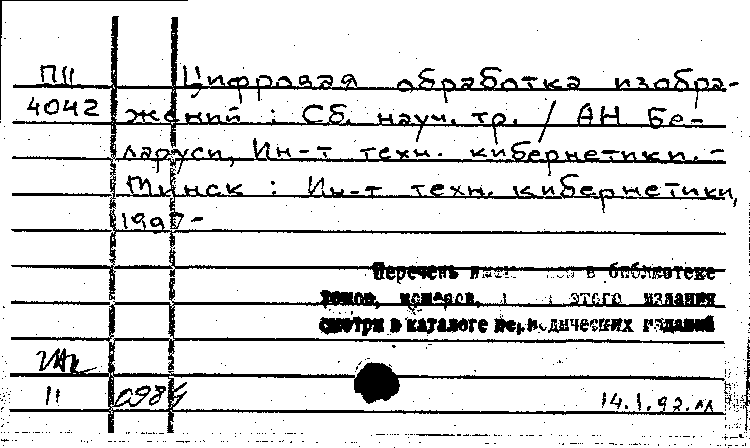 П11 Цифровая обработка изобра-
4042 жений : Сб. науч. тр. / АН Бе-
ларуси, Ин-т техн. кибернетики. -
Минск : Ин-т техн. кибернетики,
1997-
Перечень в библиотеке
томов, номеров, этого издания
смотри в каталоге периодических изданий
11
14.1.92.